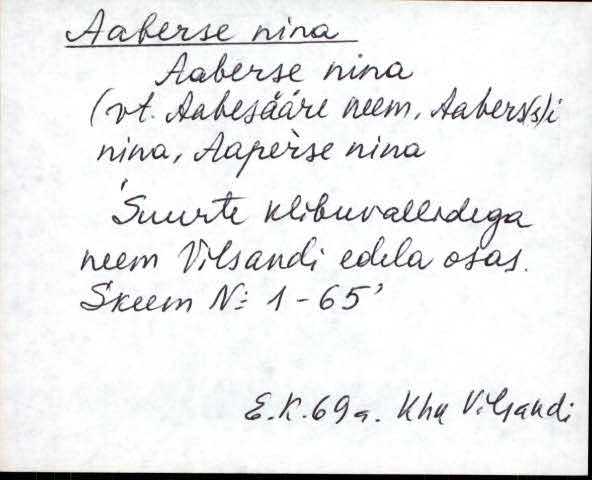 Aaberse nina
Aaberse nina
(vt. Aabesääre neem, Aabers(s)i
nina, Aaperse nina
'Suurte klibuvallidega
neem Vilsandi edela osas.
Skeem N: 1-65'
E.K. 69 a. Khn Vilsandi